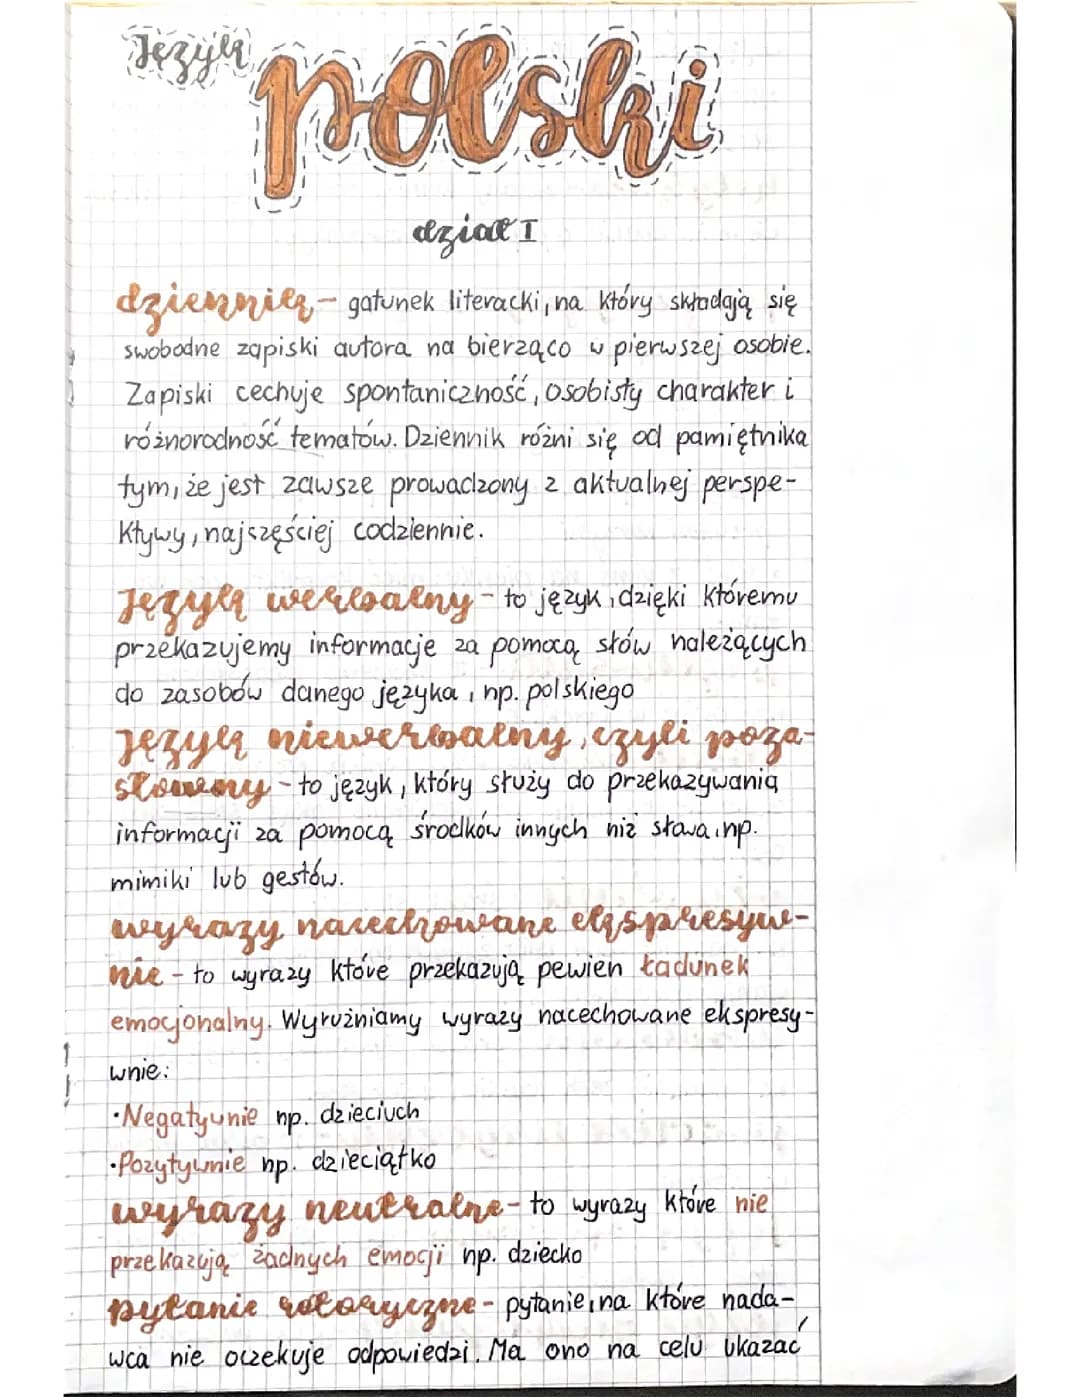 Język
polski
dział I
dziennik - gatunek literacki, na który składają się
swobodne zapiski autora na bierząco w pierwszej osobie.
Zapiski cechuje spontaniczność, osobisty charakter i
różnorodność tematów. Dziennik różni się od pamiętnika
tym, że jest zawsze prowadzony z aktualnej perspe-
ktywy, najczęściej codziennie.
Język werbalny - to język, dzięki któremu
przekazujemy informacje za pomocą słów należących
do zasobów danego języka, np. polskiego
Język niewerbalny, czyli poza-
słowny - to język, który służy do przekazywania
informacji za pomocą środków innych niż słowa, np.
mimiki lub gestów.
wyrazy nacechowane ekspresyw-
nie - to wyrazy które przekazują pewien ładunek
emocjonalny. Wyrużniamy wyrazy nacechowane ekspresy-
wnie:
•Negatywnie np. dzieciuch
•Pozytywnie np. dzieciątko
wyrazy neutralne - to wyrazy które nie
przekazują żadnych emocji np. dziecko
pytanie retoryczne - pytanie, na które nada-
wca nie oczekuje odpowiedzi. Ma ono na celu ukazać